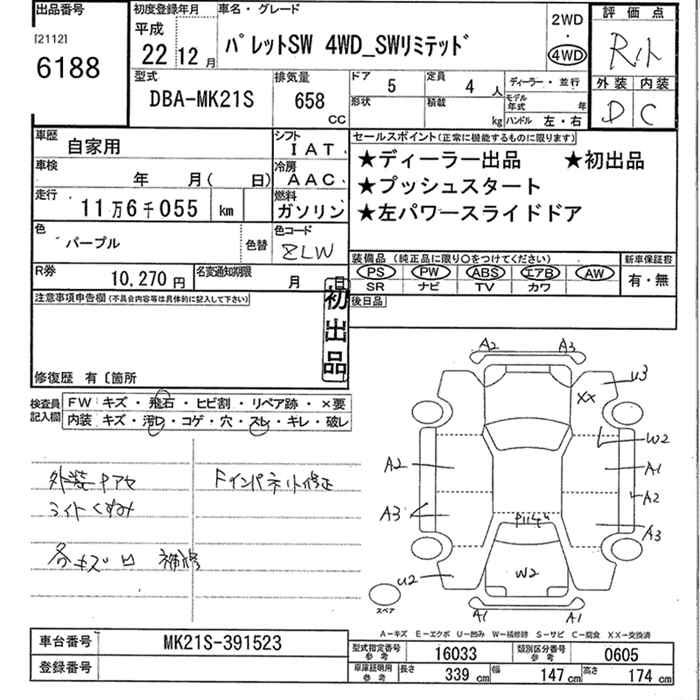 出品番号 初度登録年月 車名・グレード 2WD ・ 4WD 評価点
[2112] 6188 平成 22 12月 パレットSW 4WD_SWリミテッド R
外装 内装
D C
型式 DBA-MK21S 排気量 658 CC ドア 5 定員 4人 ディーラー・並行
形状 積載 kg モデル年式 年
ハンドル 左・右
車歴 自家用 シフト IAT セールスポイント(正常に機能するものに限ります)
車検 年 月( 日) 冷房 AAC ★ディーラー出品 ★初出品
走行 11万6千055 km 燃料 ガソリン ★プッシュスタート
★左パワースライドドア
色 パープル 色替 色コード ZLW
装備品(純正品に限り○をつけてください) 新車保証書
R券 10,270円 名変通知期限 月 日 PS PW ABS エアB AW 有・無
SR ナビ TV カワ
注意事項申告欄(不具合内容等は具体的に記入して下さい) 後日品
初出品
修復歴 有 〔箇所
検査員記入欄 FW キズ・飛石・ヒビ割・リペア跡・×要
内装 キズ・汚レ・コゲ・穴・スレ・キレ・破レ
A2 A3
U3
XX
W2
A2 A1
A2
A3 A3
U2 W2
A1 A1
外装 ヤケ Fインパネット修正
ライトくすみ
各キズ凹 補修
スペア
A-キズ E-エクボ U-凹み W-補修跡 S-サビ C-腐食 XX-交換済
車台番号 MK21S-391523 型式指定番号 参考 16033 類別区分番号 参考 0605
登録番号 車庫証明用 参考 長さ 339 cm 幅 147 cm 高さ 174 cm